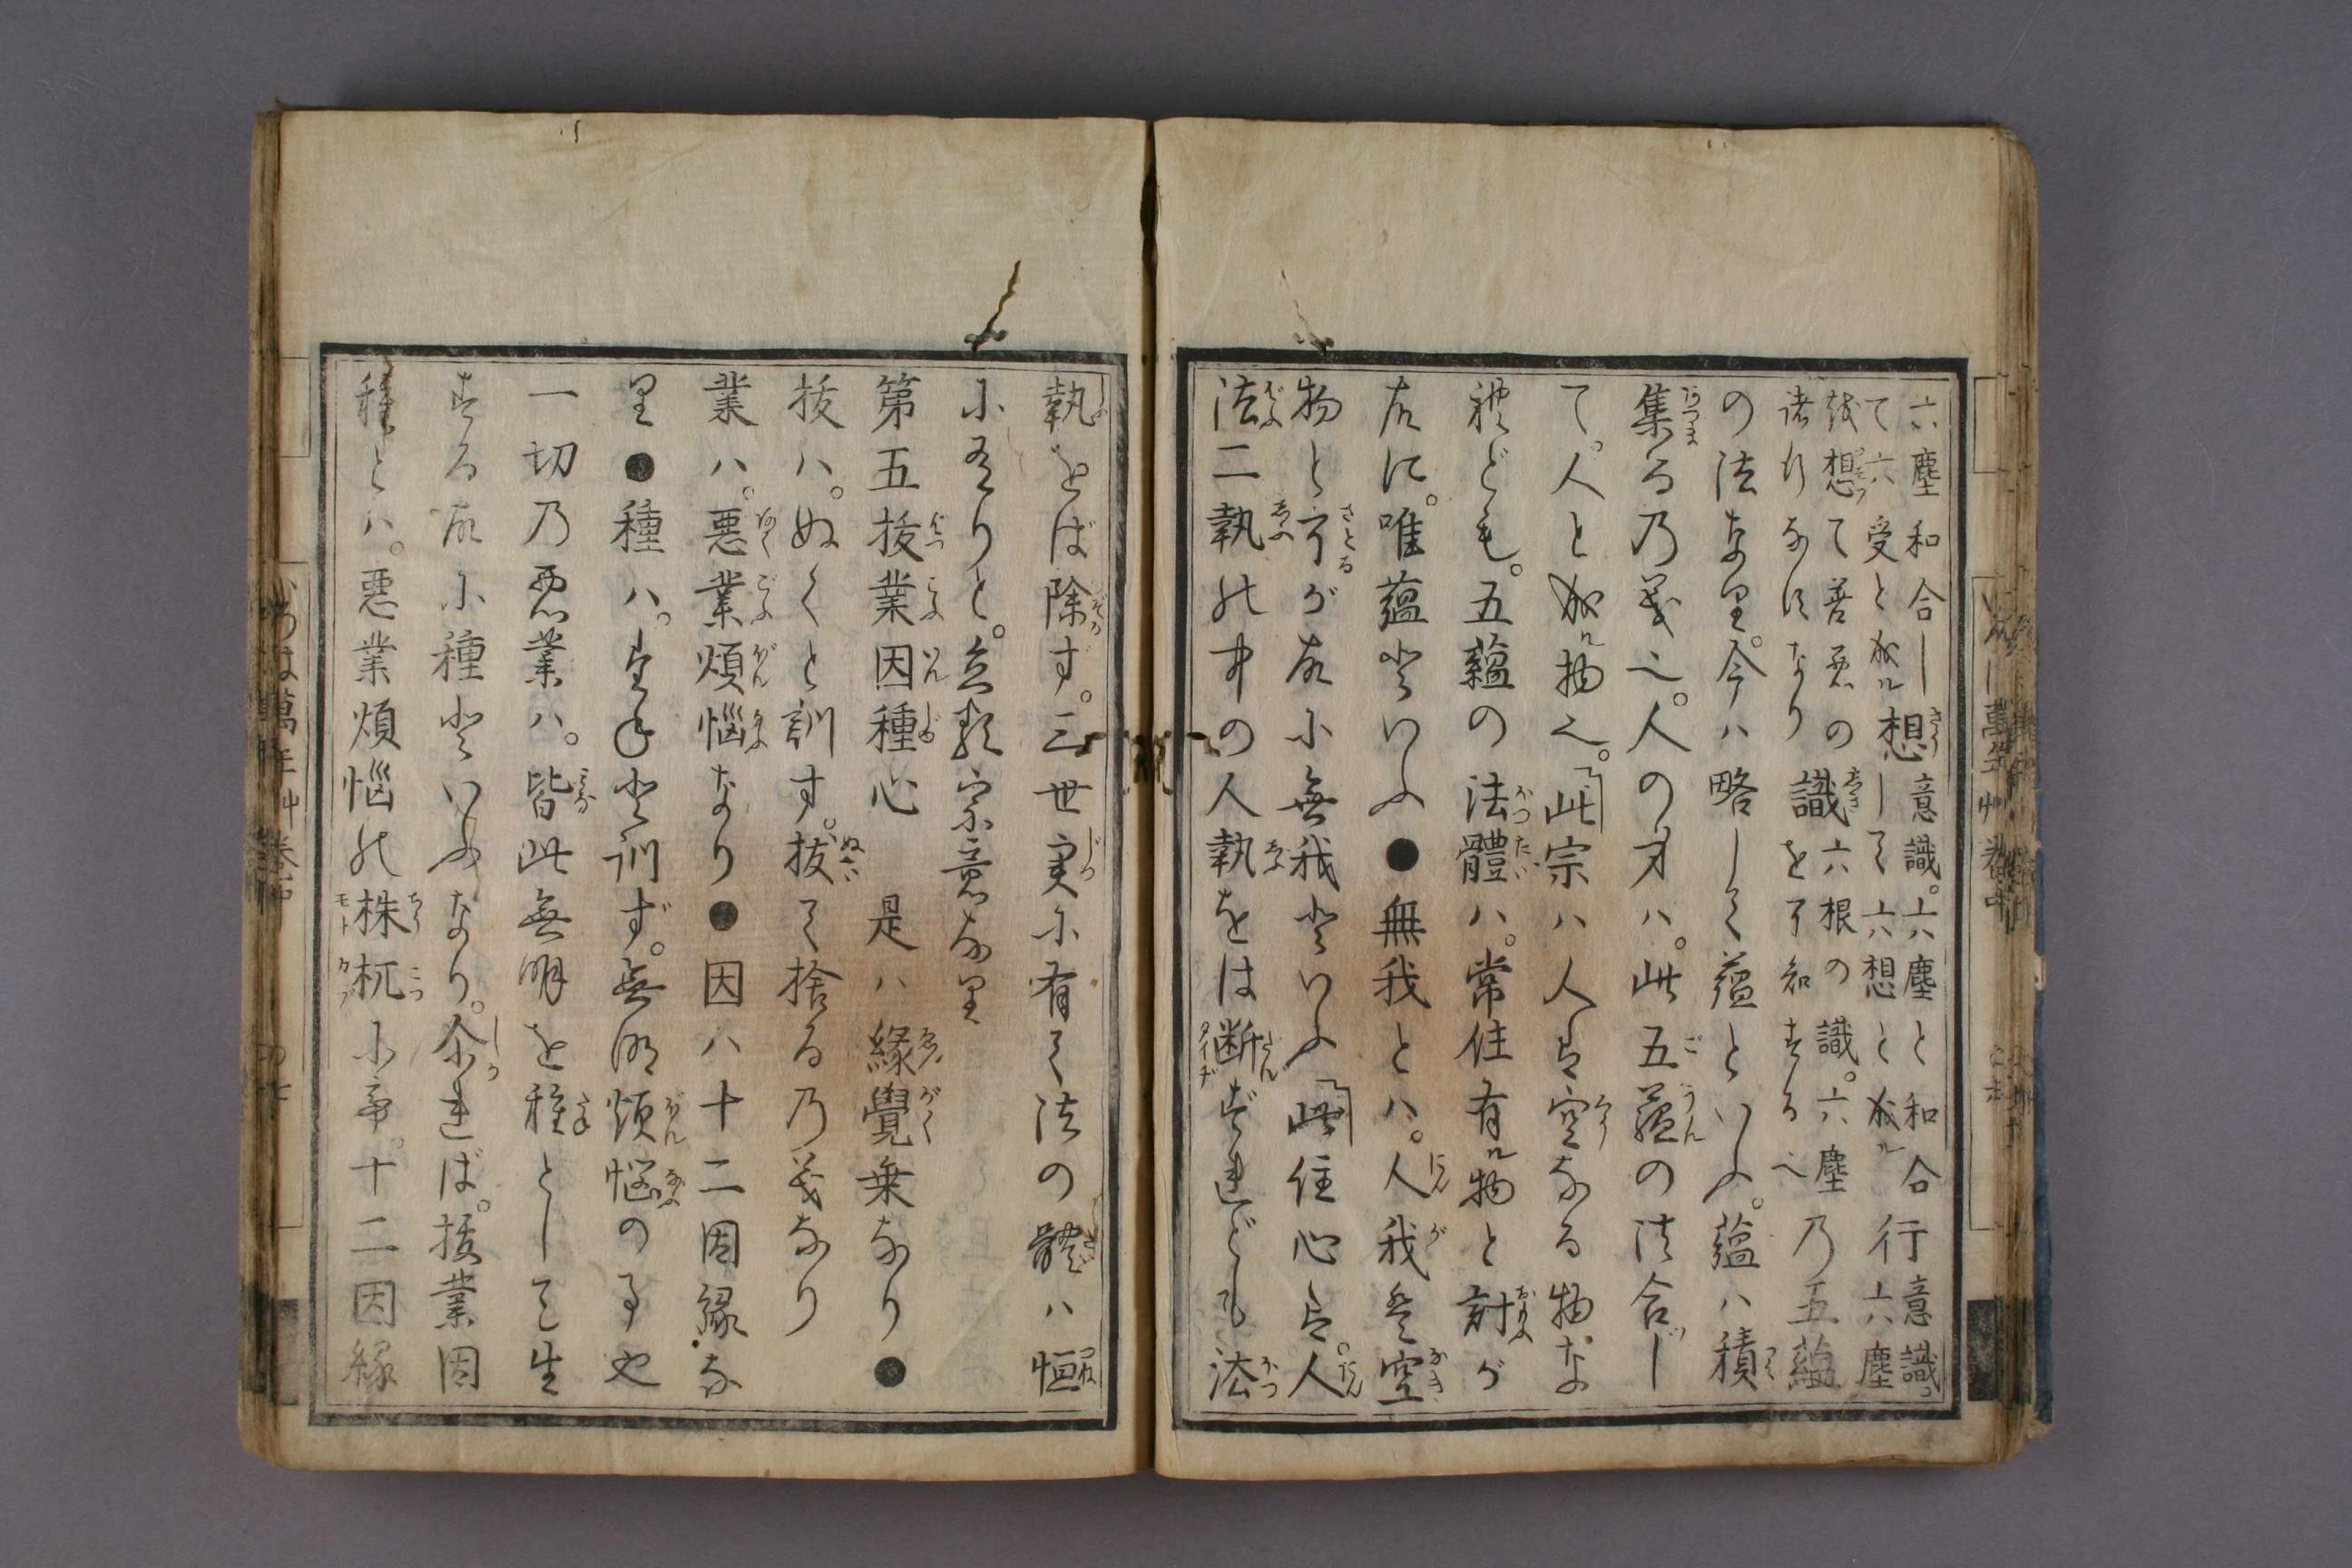 六塵和合し想意識。六塵と和合行意識。
て六受と成ル して六想と成ル 六塵
諸行なすなり 識を了知する也 乃五蘊
の法なり。今ハ略して蘊といふ。蘊ハ積
集る乃義也。人の身ハ。此五蘊の法合し
て。人と成ル物也。「此宗ハ人は空なる物な
れども。五蘊の法體ハ。常住有ル物と計が
故に。唯蘊といふ●無我とハ。人我無空
物と了が故に無我といふ「此住心は。人
法二執の中の人執をは断ずれども法
執をば除ず。三世実に有て法の體ハ恒
に有りと。立る宗意なり
第五抜業因種心 是ハ縁覺乗なり●
抜ハ。ぬくと訓す。抜て捨る乃義なり
業ハ。悪業煩悩なり●因ハ十二因縁な
り●種ハ。たねと訓ず。無明煩悩の子也
一切乃悪業ハ。皆此無明を種として生
ずる故に種といふなり。尓れば。抜業因
種とハ。悪業煩悩の株杌に帝。十二因縁